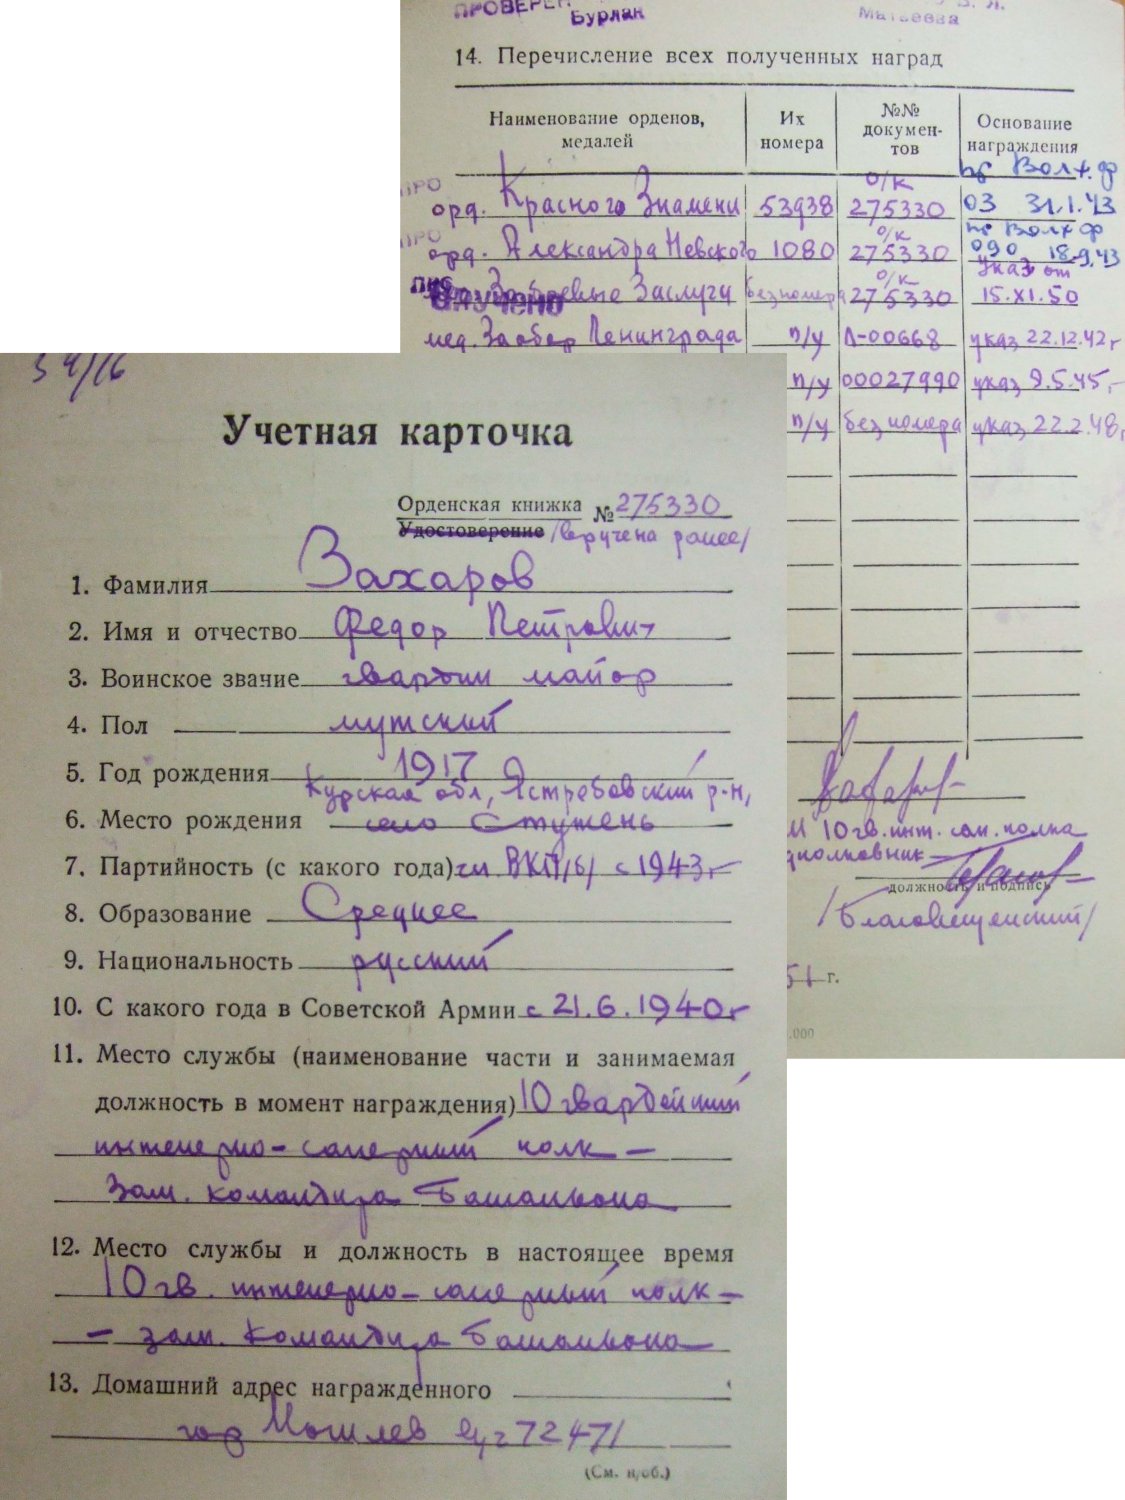 ПРОВЕРЕН
Бурлан
Матвеева
14. Перечисление всех полученных наград
Наименование орденов, медалей
Их номера
№№ докумен-тов
Основание награждения
орд. Красного Знамени 53938 о/к 275330 пр Волх. ф 03 31.1.43
орд. Александра Невского 1080 о/к 275330 пр Волх ф 090 18.9.43
За боевые Заслуги без номера о/к 275330 указ от 15.XI.50
мед. За обор Ленинграда п/у Л-00668 указ 22.12.42г
п/у 00027990 указ 9.5.45г
п/у без номера указ 22.2.48г
10 гв. инж. сап. полка
должность и подпись
/Благовещенский/
51 г.
Учетная карточка
Орденская книжка № 275330
Удостоверение /вручена ранее/
1. Фамилия Захаров
2. Имя и отчество Федор Петрович
3. Воинское звание гвардии майор
4. Пол мужский
5. Год рождения 1917
Курская обл, Ястребовский р-н,
6. Место рождения село Стужень
7. Партийность (с какого года) чл ВКП/б/ с 1943г
8. Образование Среднее
9. Национальность русский
10. С какого года в Советской Армии с 21.6.1940г
11. Место службы (наименование части и занимаемая
должность в момент награждения) 10 гвардейский
инженерно-саперный полк -
Зам. командира батальона
12. Место службы и должность в настоящее время
10 гв. инженерно-саперный полк -
- зам. командира батальона
13. Домашний адрес награжденного
гор Могилев в/ч 72471
(См. н/об.)